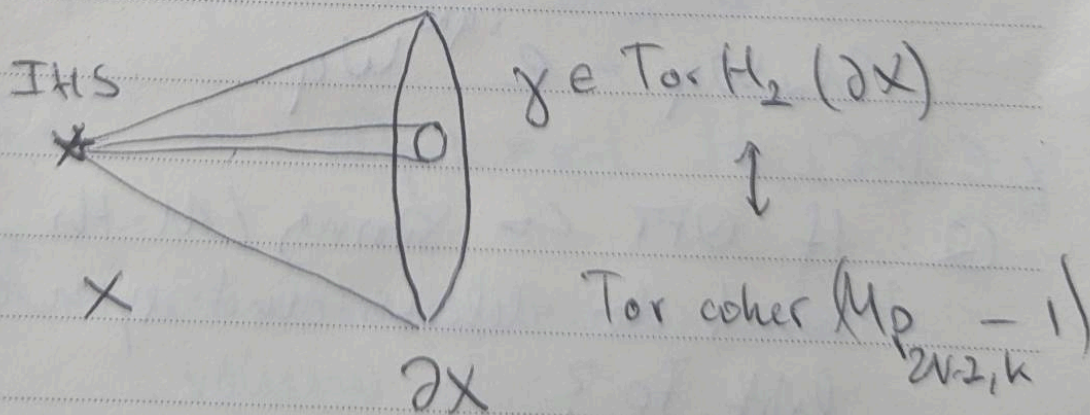 IHS
γ ∈ Tor H₂ (∂X)
↕
X
Tor coker (M_P
∂X